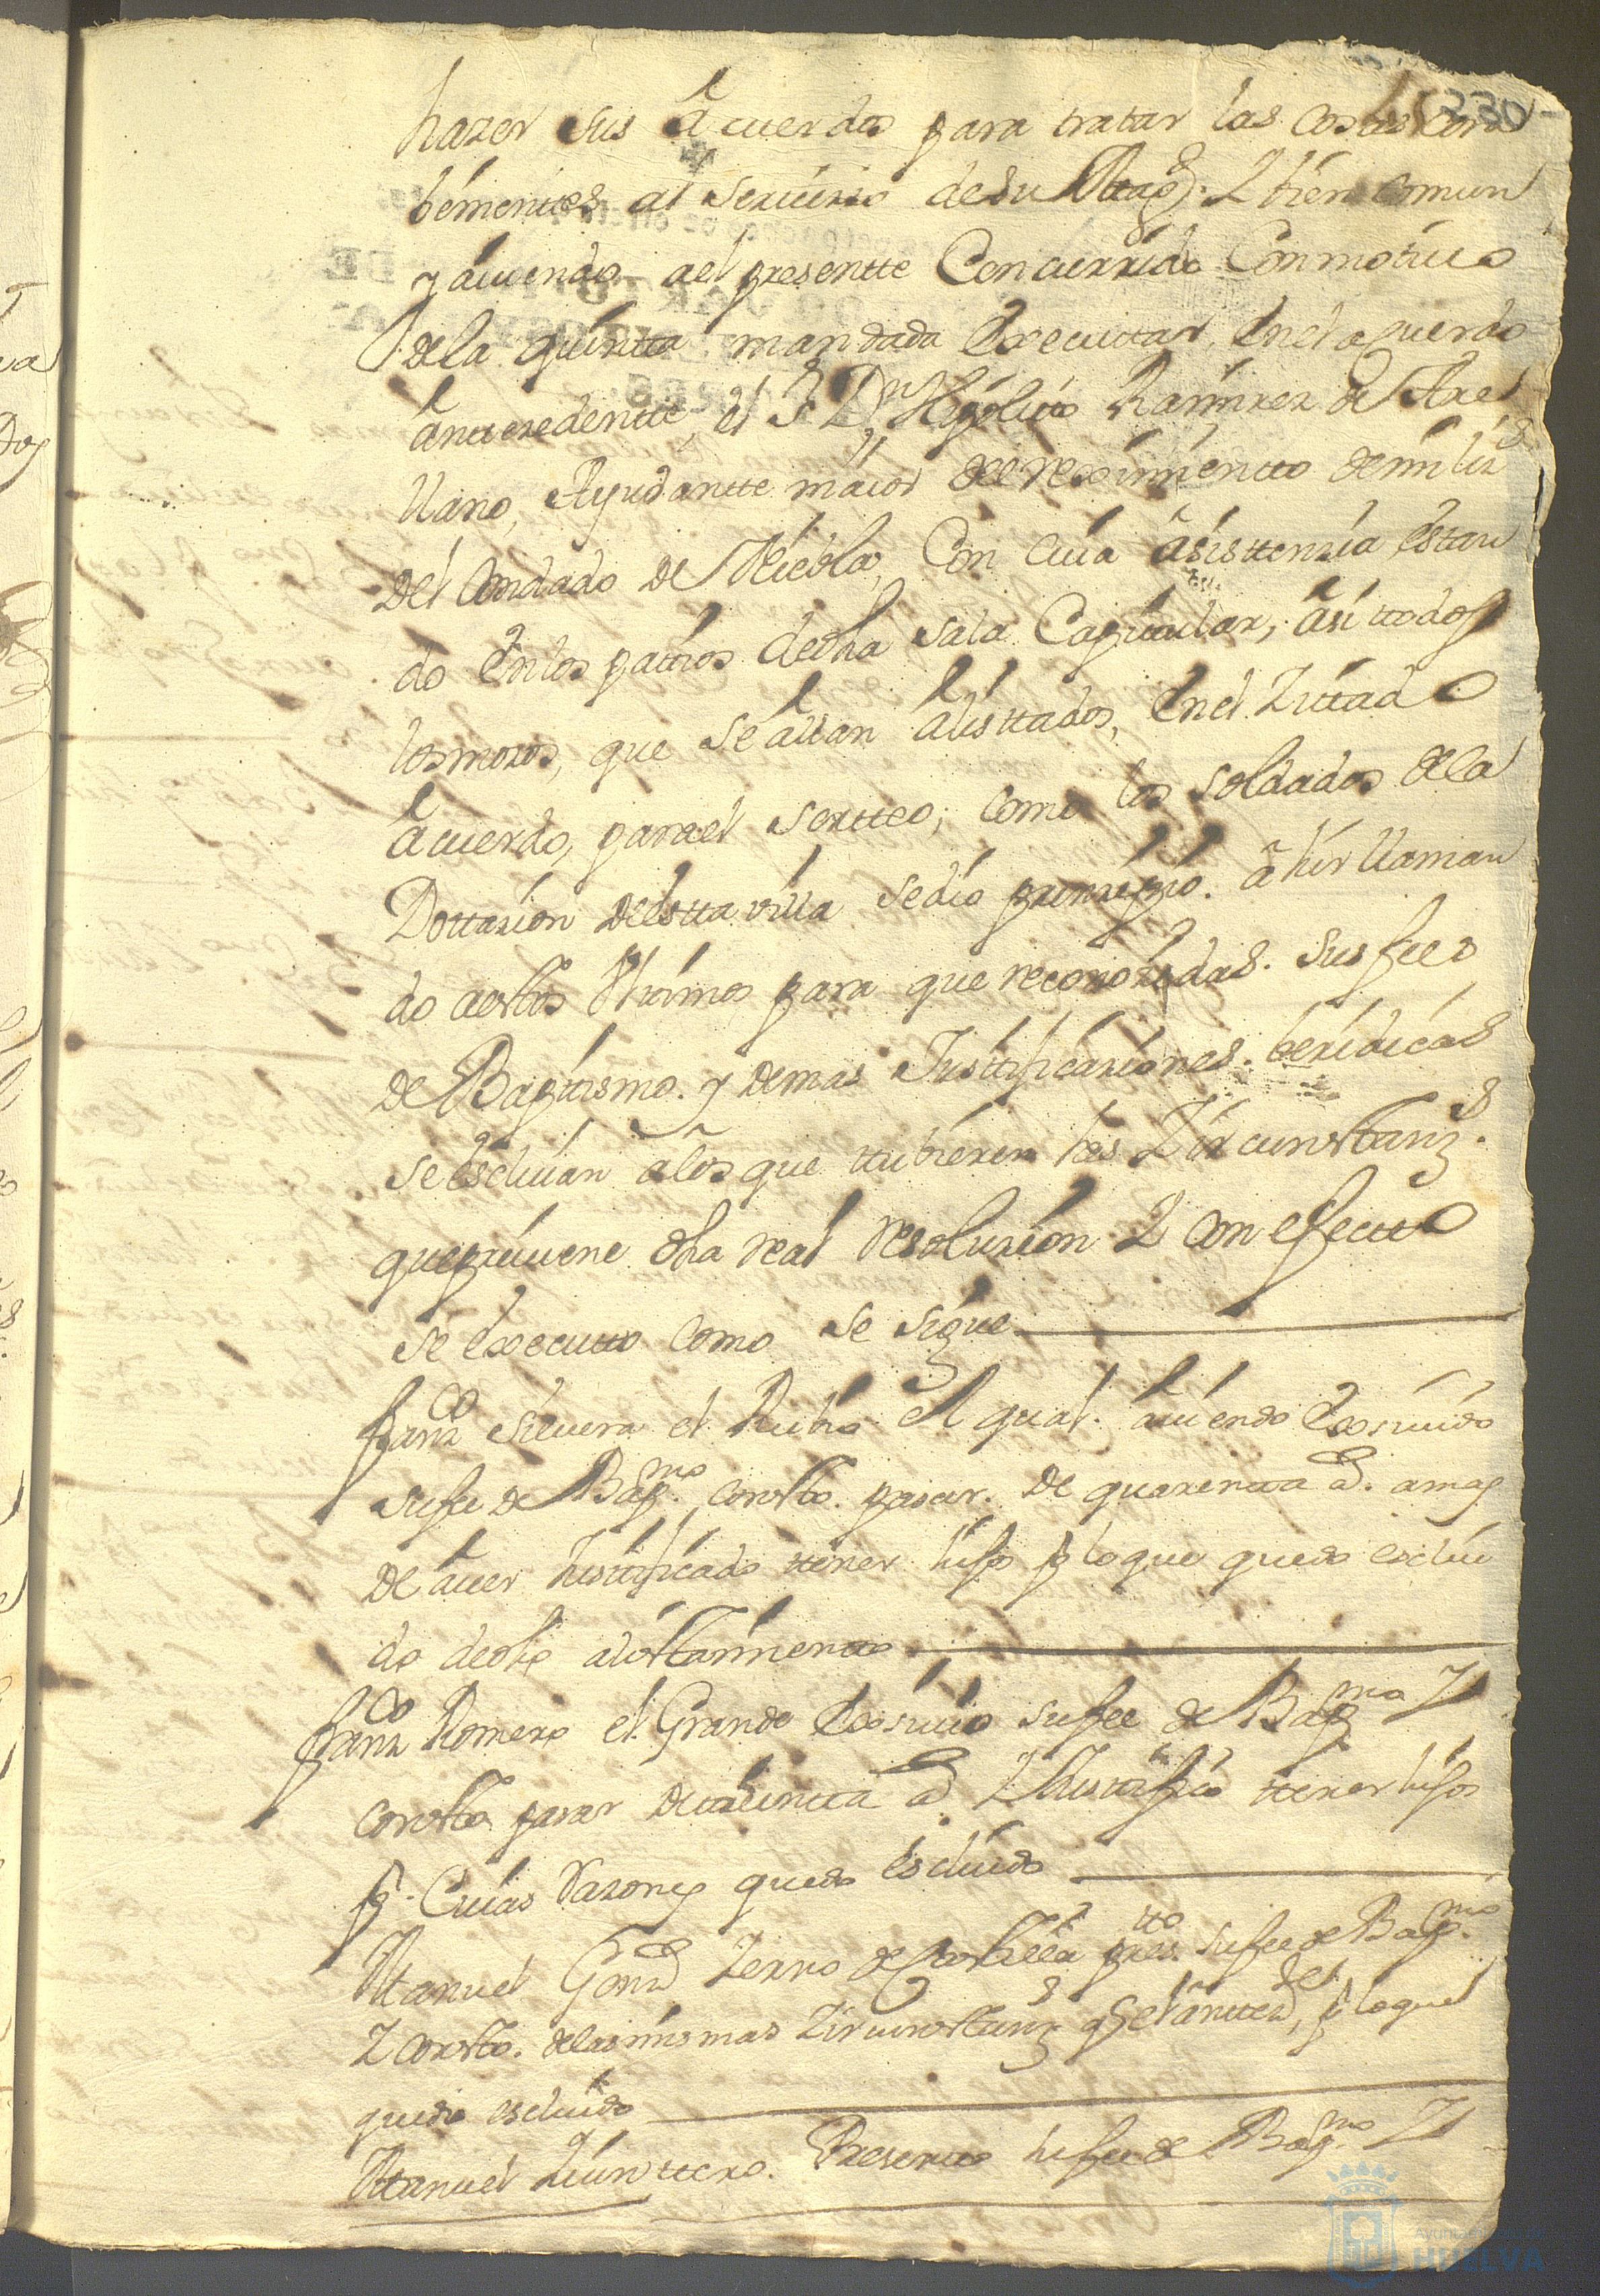 330
hazer sus acuerdos para tratar las cosas con
benientes al servicio de su Magd. Y bien comun
y aviendo al presentte Concurrido Con motivo
de la quintta mandada Executtar, en el acuerdo
anttezedentte, el Sr. Dn. Hipolito Ramirez de Arel
llano, Ayudantte maior del reximientto de miliz
del Condado de Niebla, Con cuia asisttenzia estan
do en los patios de dha sala Capitular, asi ttodos
los mozos, que se allan alisttados, en el Zittado
acuerdo, para el sortteo, como los soldados de la
Dottazion de estta villa se dio prinzipio. a hir llaman
do a estos Ultimos para que reconozidas. sus fees
de Baptismo. y demas Justtificaziones. beridicas
se escluian a los que ttubieren las Zircunstanz.
que previene dha real resoluzion Y con efectto
se executto como se sigue
Franco Silvera el Rubio el qual. aviendo Exsivido
su fee de Bapmo. consto. pasar. de quarentta as. a mas
de aver Justtificado ttener hijos p lo que quedo esclui
do de dho alistamientto
Franco Romero el Grande Exsivio su fee de Bapmo Y
consto pasar de ttreintta as Y Justtifico ttener hijos
p. Cuias Razones quedo escluido
Manuel Gonz Zerro de Costilla prestto su fee de Bapmo.
Y consto. de las mismas Zircunstanz q el antteds, p lo que
quedo escluido
Manuel Quinttero. Presentto su fee de Bapmo Y
Ayuntamiento de
HUELVA